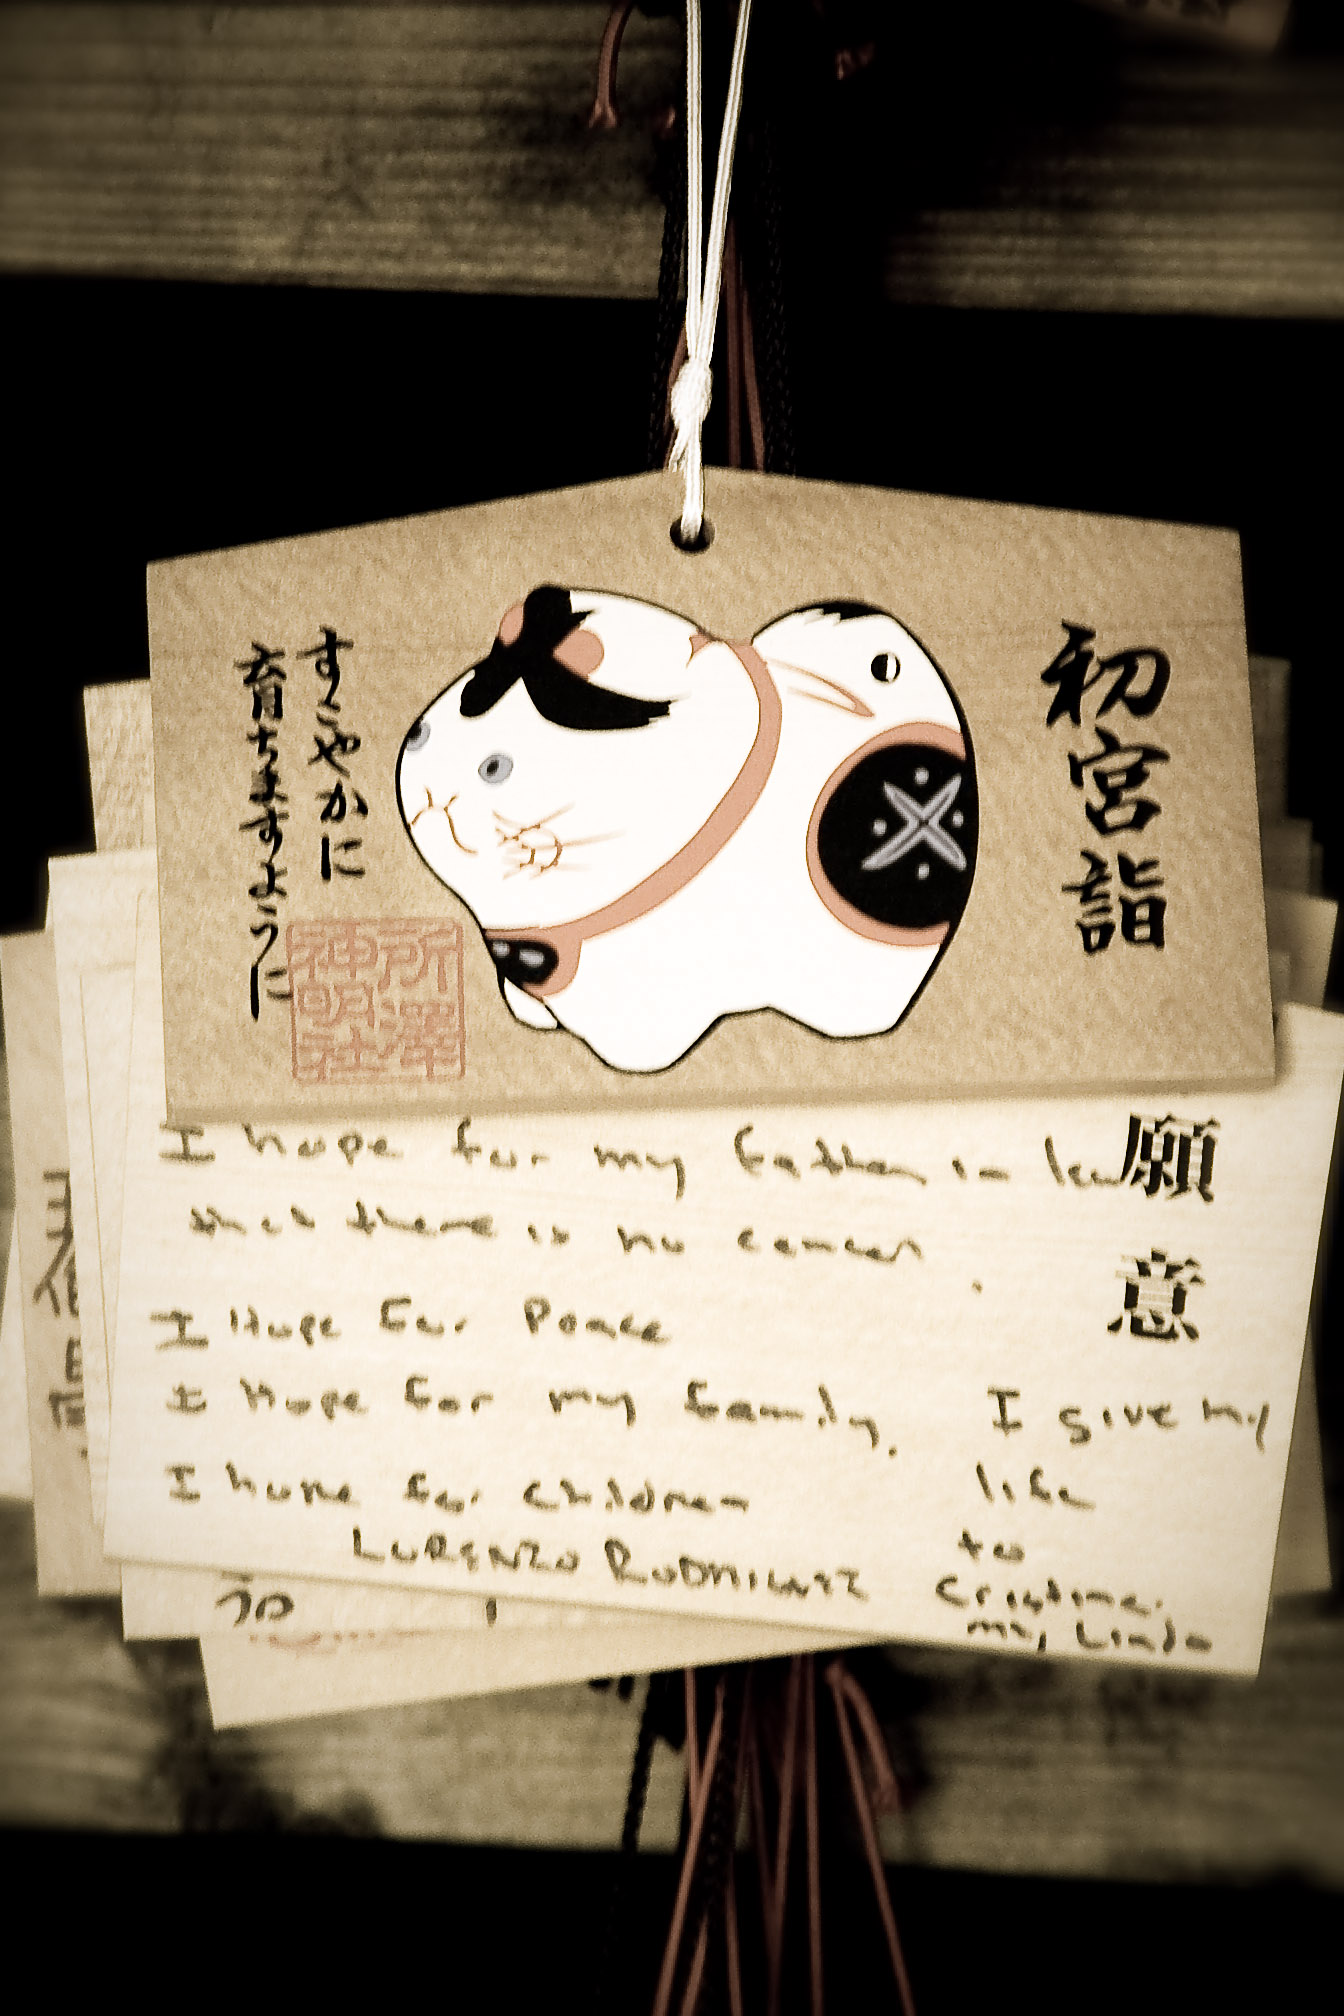 初宮詣
すこやかに
育ちますように
所澤
神明社
願意
I hope for my father in law
that there is no cancer.
I Hope For Peace
I Hope For my family.
I hope for children
LORENZO RODRIGUEZ
I give my
life
to
Cristina.
my Linda